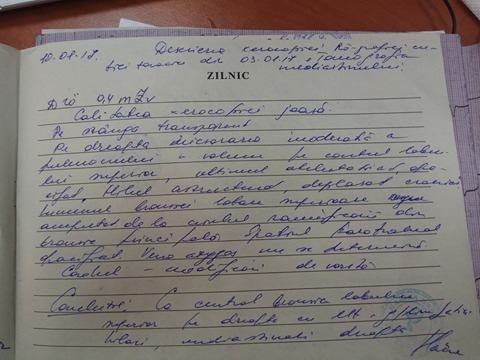 10.08.17. Descrierea xerocopiei Rö-grafiei cu-
tiei toracice din 03.01.17, tomografia
mediastinului.
ZILNIC
D rö 0,4 mZv
Calitatea xerocopiei joasă.
Pe stânga transparent
Pe dreapta micșorarea moderată a
pulmonului în volum pe contul lobu-
lui superior, ultimul atelectaziat, opa-
cifiat, Hilul astructurat, deplasat cranial
Lumenul bronhiei lobare superioare
amputat de la contul ramificării din
bronhia principală Spațiul paratraheal
opacifiat. Vena azygos nu se determină
Cordul - modificări de vârstă
Concluzie: Ca central bronhia lobului
superior pe dreapta cu
hilari, mediastinali dreapta